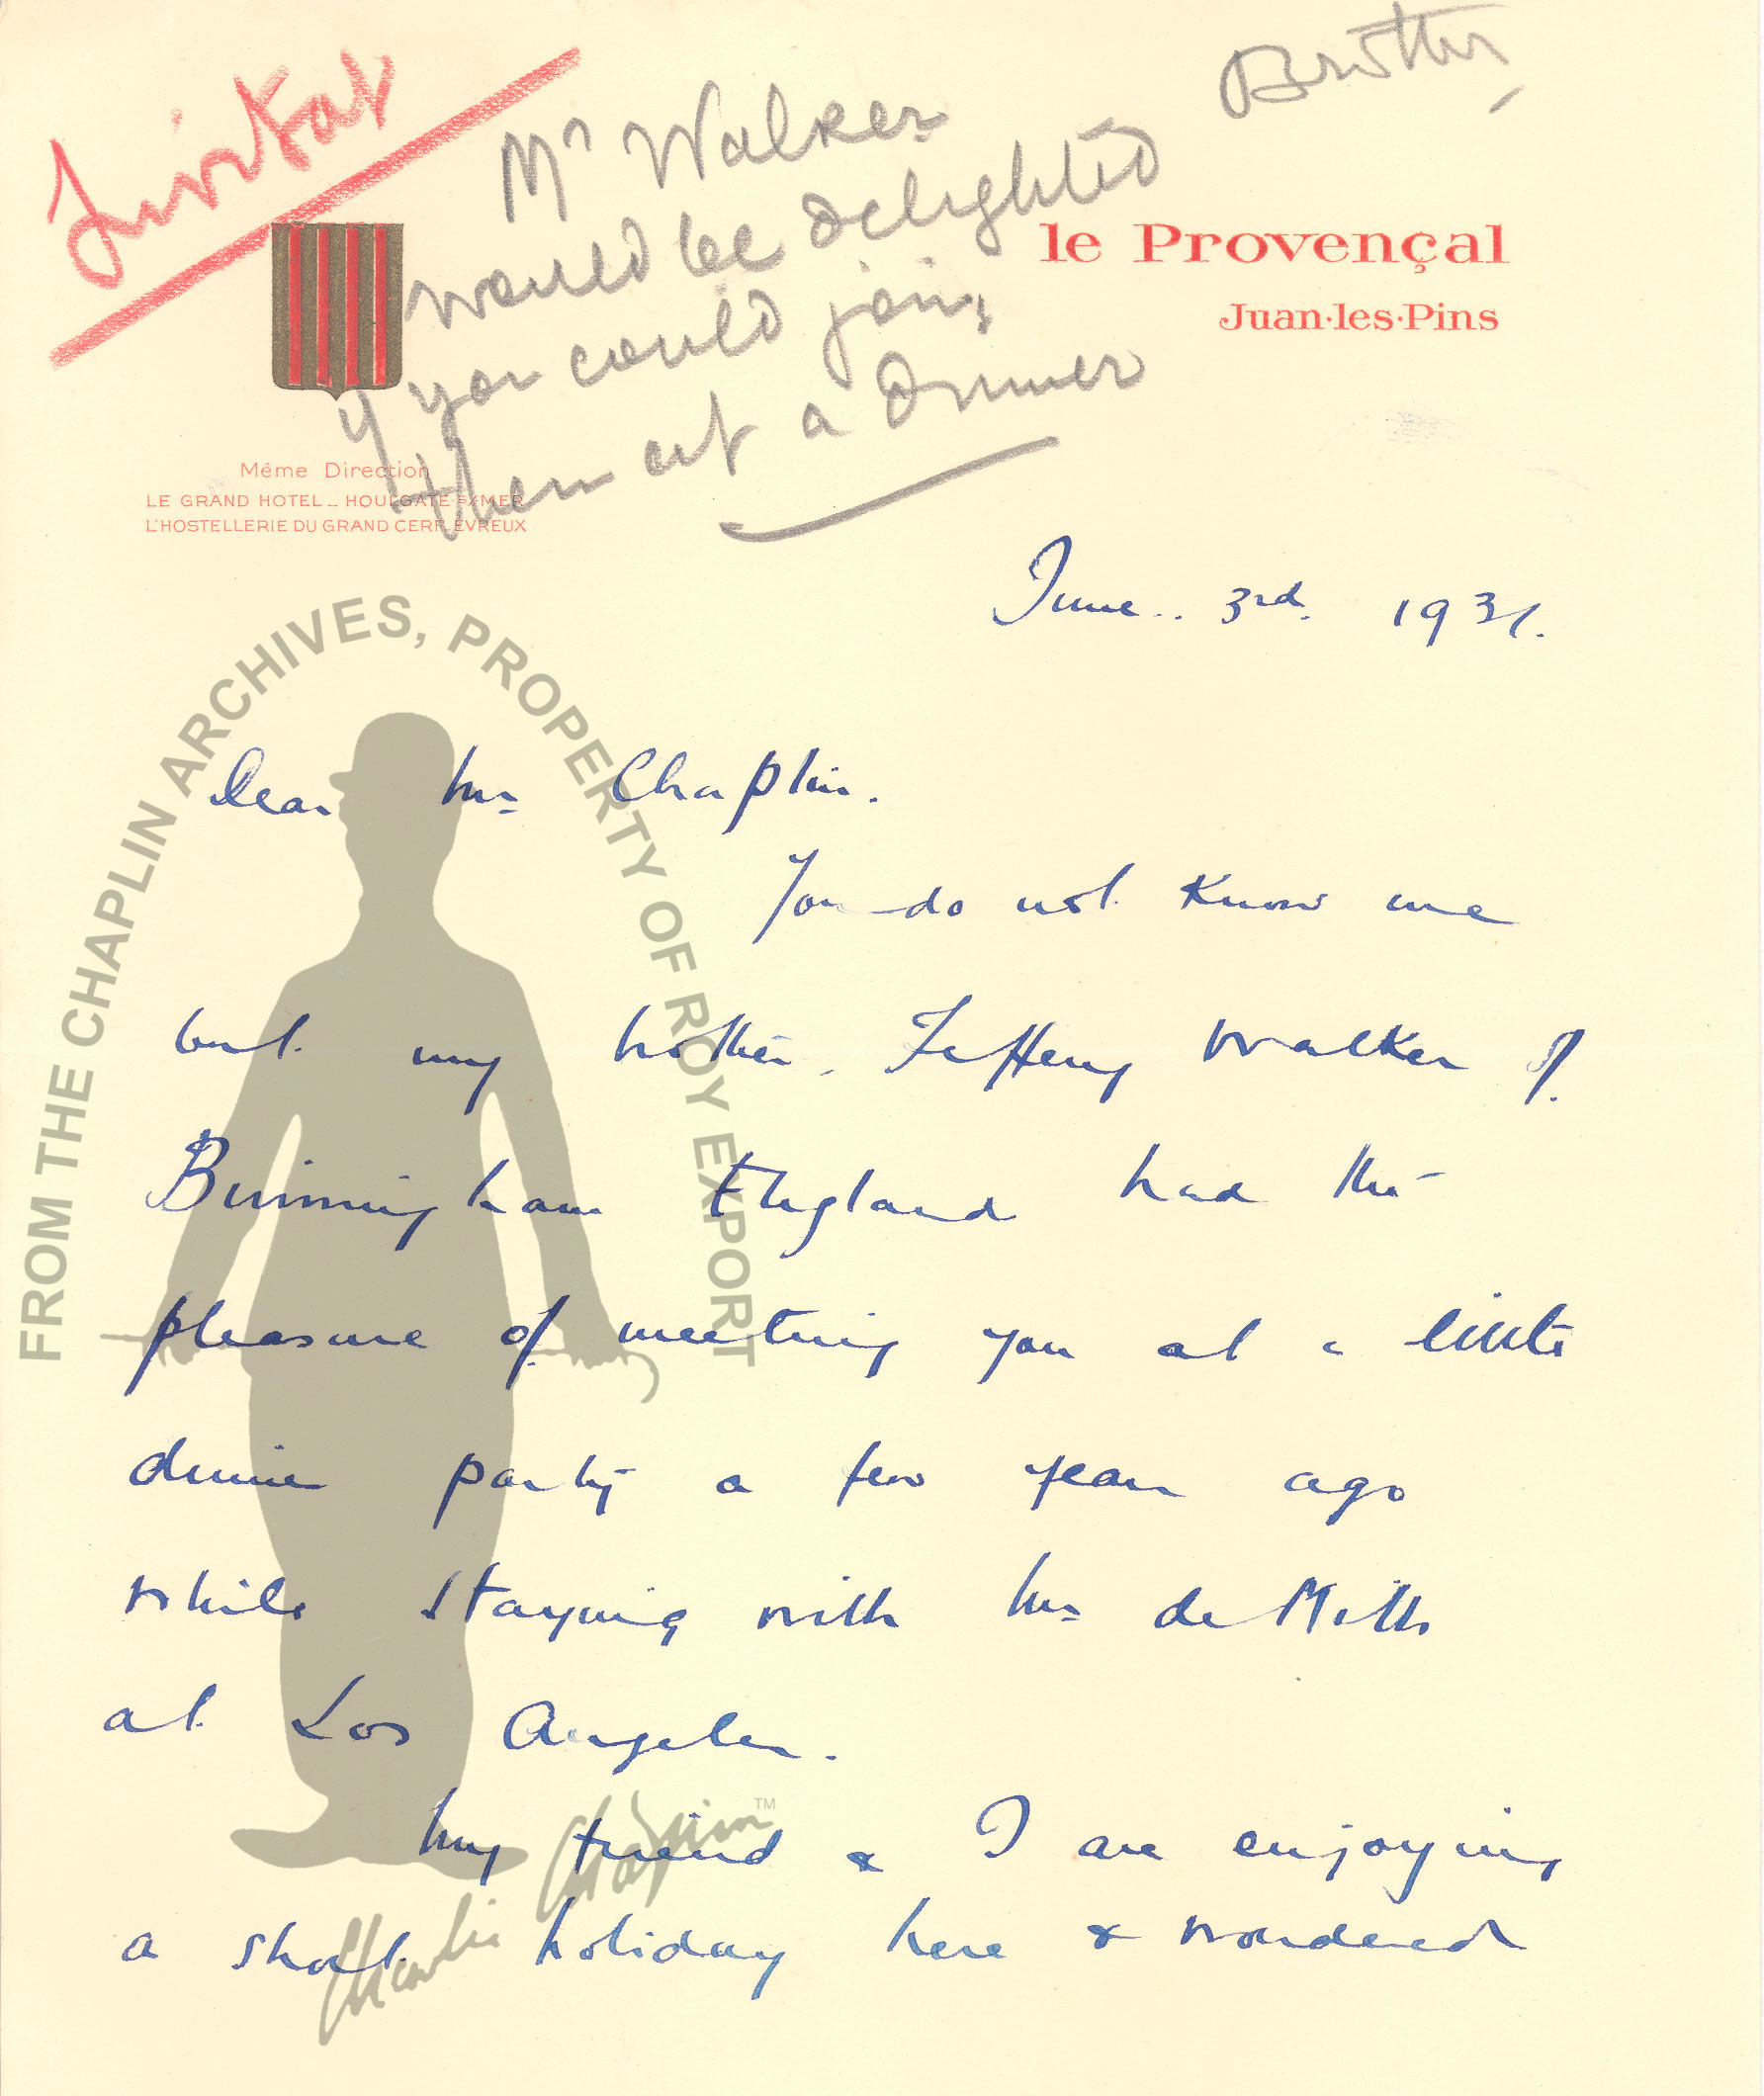 Invitat
Brother,
Mr Walker
would be delighted
if you could join
them at a dinner
le Provençal
Juan-les-Pins
Même Direction
LE GRAND HOTEL _ HOULGATE S/MER
L'HOSTELLERIE DU GRAND CERF_EVREUX
June.. 3rd. 1931.
FROM THE CHAPLIN ARCHIVES, PROPERTY OF ROY EXPORT
Dear Mr Chaplin.
You do not know me
but my brother, Jeffery Walker of
Birmingham England had the
pleasure of meeting you at a little
dinner party a few years ago
while staying with Mr de Mille
at Los Angeles.
My friend & I are enjoying
a short holiday here & wondered
Charlie Chaplin™